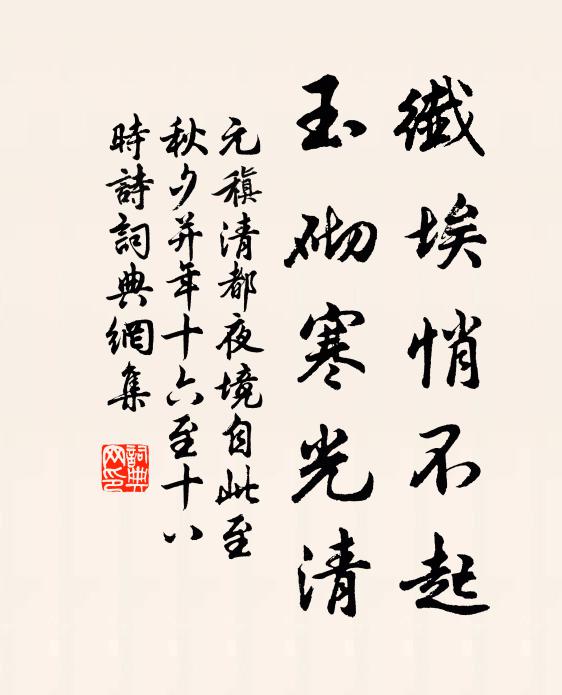 纖埃悄不起
玉砌寒光清
元稹清都夜境自此至
秋夕并年十六至十八
時詩詞典網集
詞典网印